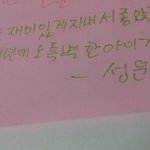 재미있게지내서좋았
년에도특별한아이가
- 성윤